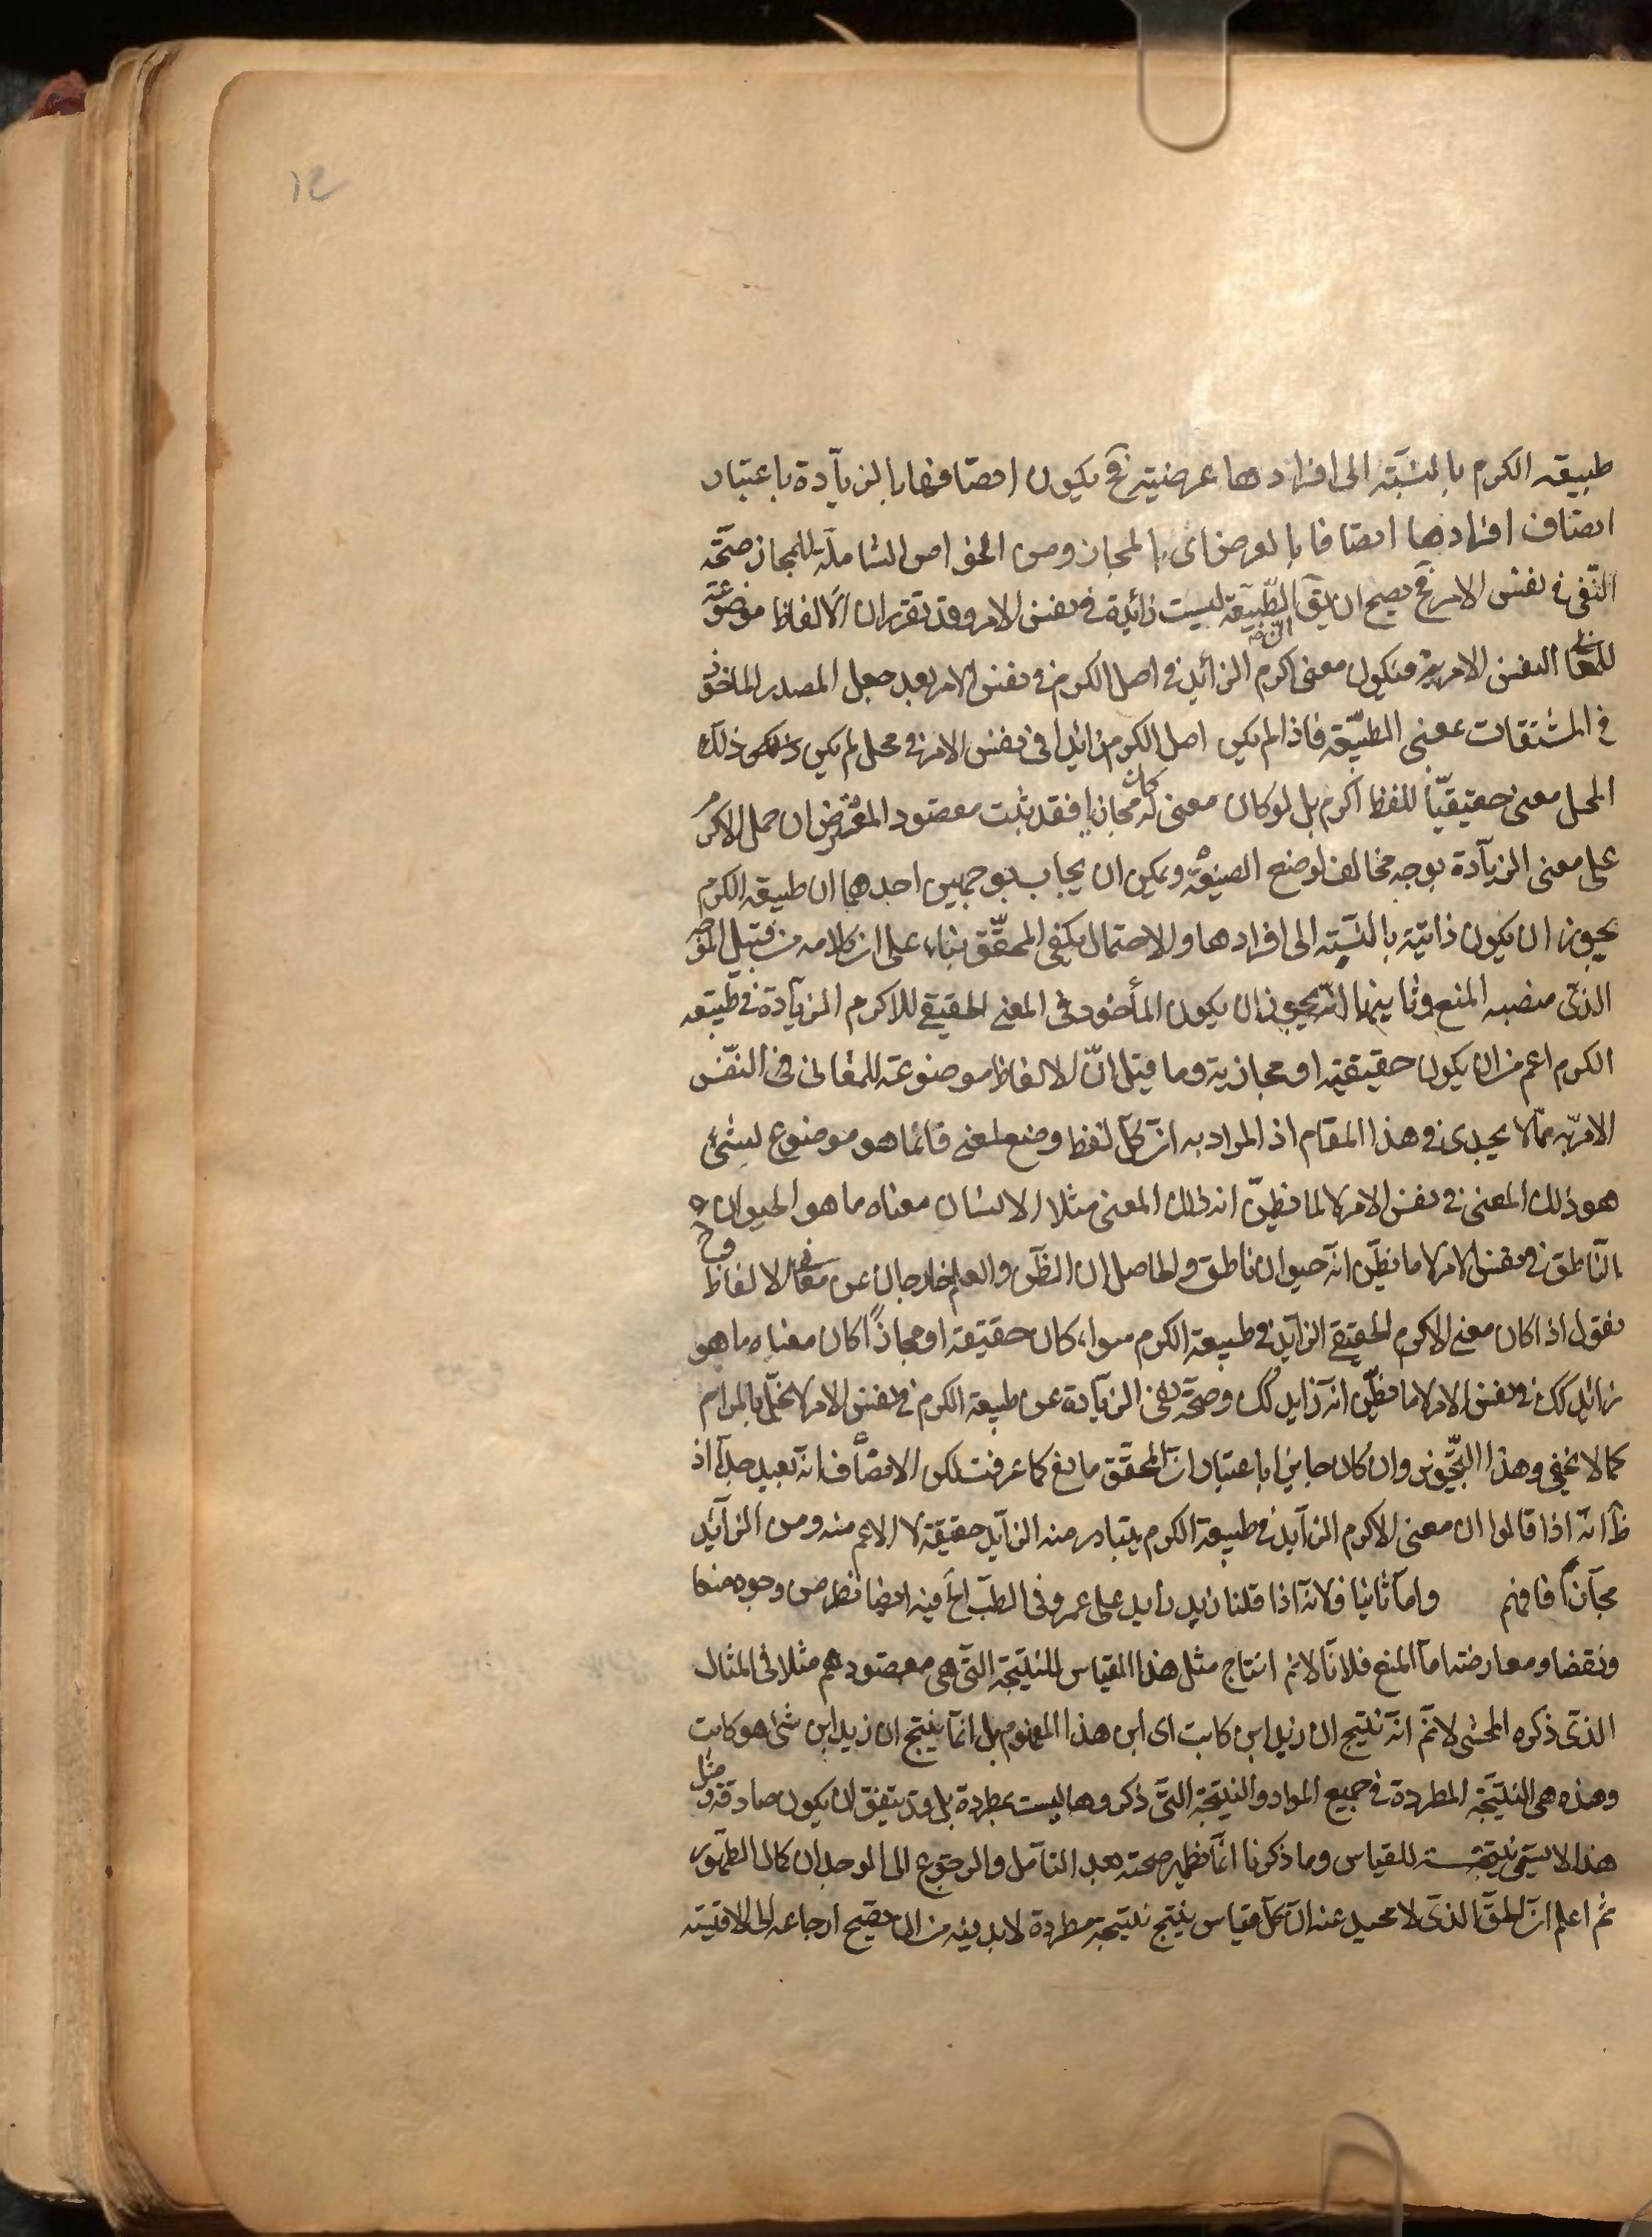 ١٢
طبيعة الكرم بالنسبة الى افرادها عرضية فح يكون اتصافها بالزيادة باعتبار
اتصاف افرادها اتصافا بالعرض اى بالمجاز ومن الخواص الشاملة للمجاز صحة
النفى فى نفس الامر فح يصح ان يق الطبيعة ليست زائدة فى نفس الامر وقد تقرر ان الالفاظ موضوعة
للمعانى النفس الامرية فيكون معنى اكرم الزائد فى اصل الكرم فى نفس الامر بعد جعل المصدر الماخوذ
فى المشتقات بمعنى الطبيعة فاذا لم يكن اصل الكرم زائدا فى نفس الامر فى محل لم يكن ذلك
المحل معنى حقيقيا للفظ اكرم بل لو كان معنى له كان مجازيا فقد ثبت مقصود المعترض ان حمل الاكرم
على معنى الزيادة بوجه مخالف لوضع الصيغة ويمكن ان يجاب بوجهين احدهما ان طبيعة الكرم
يجوز ان يكون ذاتية بالنسبة الى افرادها والاحتمال يكفى المحقق بناء على ان كلامه من قبيل
الذى منصبه المنع وثانيهما انه يجوز ان يكون المأخوذ فى المعنى الحقيقى للاكرم الزيادة فى طبيعة
الكرم اعم من ان يكون حقيقية او مجازية وما قيل ان الالفاظ موضوعة للمعانى فى النفس
الامرية مما لا يجدى فى هذا المقام اذ المراد به ان كل لفظ وضع لمعنى فانما هو موضوع لشئ
هو ذلك المعنى فى نفس الامر لا لما نظن انه ذلك المعنى مثلا الانسان معناه ما هو الحيوان
الناطق فى نفس الامر لا ما نظن انه حيوان ناطق والحاصل ان الظن والعلم خارجان عن معانى الالفاظ وح
نقول اذا كان معنى الاكرم الحقيقى الزائد فى طبيعة الكرم سواء كان حقيقة او مجازا كان معناه ما هو
زائد كك فى نفس الامر لا ما نظن انه زايد كك وصحة نفى الزيادة عن طبيعة الكرم فى نفس الامر لا يخل بالمرام
كما لا يخفى وهذا التجويز وان كان جايزا باعتبار ان المحقق مانع كما عرفت لكن الانصاف انه بعيد جدا اذ
ظ انه اذا قالوا ان معنى الاكرم الزايد فى طبيعة الكرم يتبادر منه الزايد حقيقة لا الاعم منه ومن الزايد
مجازا فافهم واما ثانيا فلانه اذا قلنا زيد زايد على عمرو فى الطب الخ فيه ايضا نظر من وجوه منعا
ونقضا ومعارضة اما المنع فلانا لا نم انتاج مثل هذا القياس للنتيجة التى هى مقصودهم مثلا فى المثال
الذى ذكره المحشى لا نم انه نتيج ان زيد ابن كاتب اى ابن هذا المفهوم بل انما ينتج ان زيد ابن شئ هو كاتب
وهذه هى النتيجة المطردة فى جميع المواد والنتيجة التى ذكروها ليست بمطردة بل قد يتفق ان يكون صادقة ومثل
هذا لا يسمى نتيجة للقياس وما ذكرنا انما نظهر صحته بعد التأمل والرجوع الى الوجدان كمال الظهور
ثم اعلم ان الحق الذى لا محيد عنه ان كل قياس ينتج نتيجة مطردة لا بد فيه من ان يصح ارجاعه الى الاقيسة